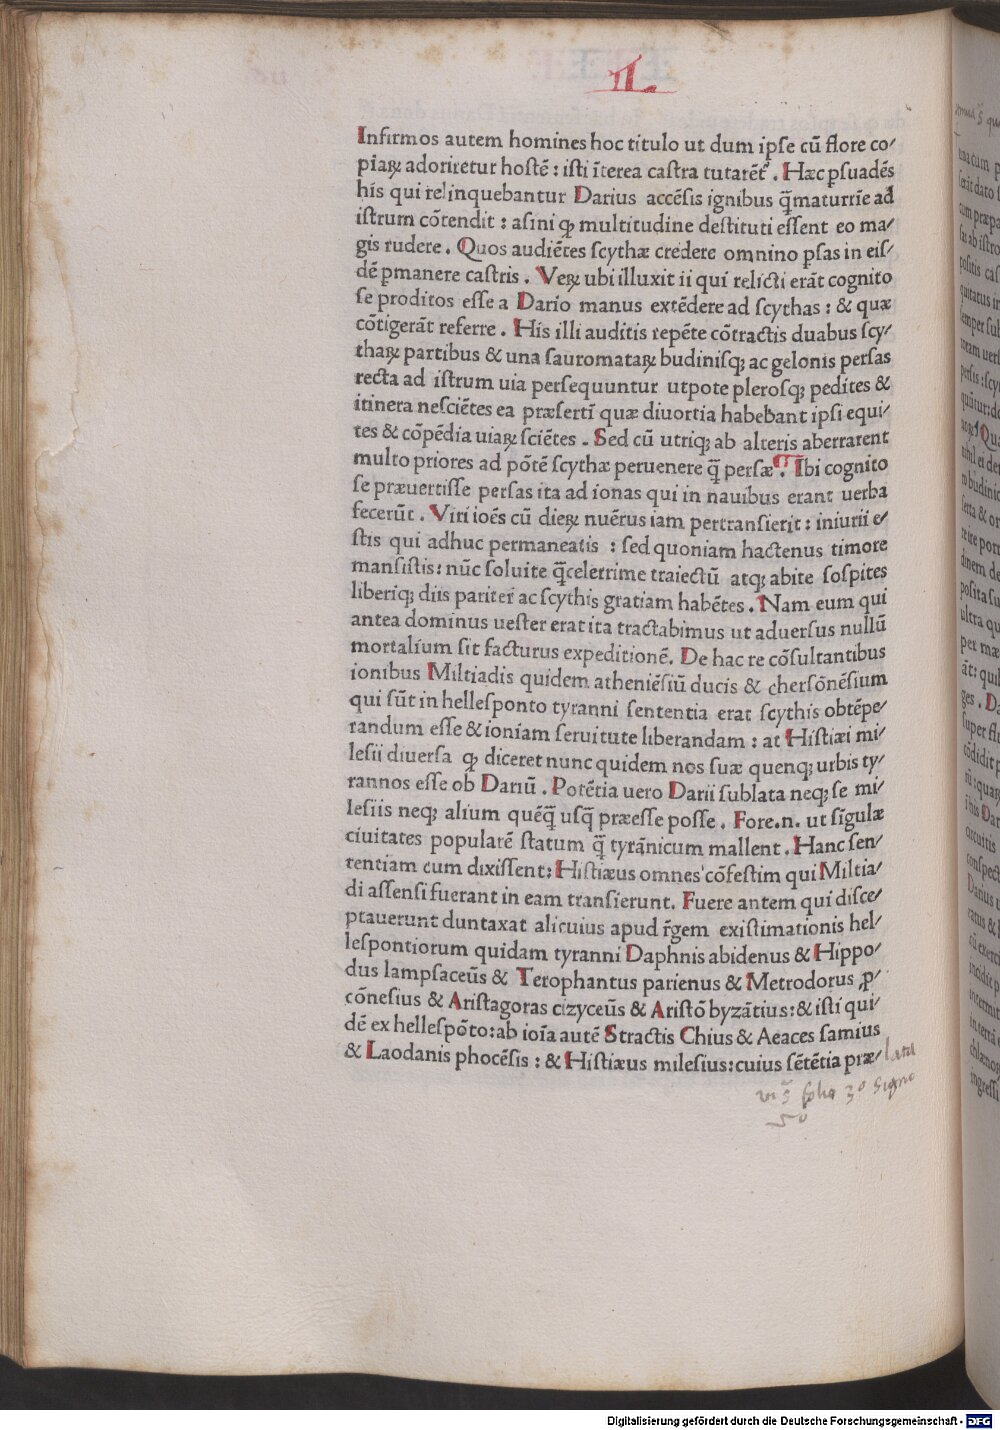 II.
Infirmos autem homines hoc titulo ut dum ipſe cū flore co⸗
piaꝝ adoriretur hoſtē : iſti īterea caſtra tutarēt᷑ . Hæc ꝑſuadēs
his qui relinquebantur Darius accēſis ignibus q̄maturrīe ad
iſtrum cōtendit : aſini ꝙ multitudine deſtituti eſſent eo ma⸗
gis rudere . Quos audiētes ſcythæ credere omnino ꝑſas in eiſ⸗
dē ꝑmanere caſtris . Veꝝ ubi illuxit ii qui relicti erāt cognito
ſe proditos eſſe a Dario manus extēdere ad ſcythas : & quæ
cōtigerāt referre . His illi auditis repēte cōtractis duabus ſcy⸗
thaꝝ partibus & una ſauromataꝝ budiniſqꝫ ac gelonis perſas
recta ad iſtrum uia perſequuntur utpote pleroſqꝫ pedites &
itinera neſciētes ea præſertī quæ diuortia habebant ipſi equi⸗
tes & cōpēdia uiaꝝ ſciētes . Sed cū utriqꝫ ab alteris aberrarent
multo priores ad pōtē ſcythæ peruenere q̄ perſæ . Ibi cognito
ſe præuertiſſe perſas ita ad ionas qui in nauibus erant uerba
fecerūt . Viri ioēs cū dieꝝ nuērus iam pertranſierit : iniurii e⸗
ſtis qui adhuc permaneatis : ſed quoniam hactenus timore
manſiſtis : nūc ſoluite q̄celerrime traiectū atqꝫ abite ſoſpites
liberiqꝫ diis pariter ac ſcythis gratiam habētes . Nam eum qui
antea dominus ueſter erat ita tractabimus ut aduerſus nullū
mortalium ſit facturus expeditionē. De hac re cōſultantibus
ionibus Miltiadis quidem atheniēſiū ducis & cherſōnēſium
qui ſūt in helleſponto tyranni ſententia erat ſcythis obtēpe⸗
randum eſſe & ioniam ſeruitute liberandam : at Hiſtiæi mi⸗
leſii diuerſa ꝙ diceret nunc quidem nos ſuæ quenqꝫ urbis ty⸗
rannos eſſe ob Dariū . Potētia uero Darii ſublata neqꝫ ſe mi⸗
leſiis neqꝫ alium quēq̄ uſq̄ præeſſe poſſe . Fore.n. ut ſīgulæ
ciuitates popularē ſtatum q̄ tyrānicum mallent . Hanc ſen⸗
tentiam cum dixiſſent: Hiſtiæus omnes cōfeſtim qui Miltia⸗
di aſſenſi fuerant in eam tranſierunt. Fuere antem qui diſce⸗
ptauerunt duntaxat alicuius apud r̄gem exiſtimationis hel⸗
leſpontiorum quidam tyranni Daphnis abidenus & Hippo⸗
dus lampſaceūs & Terophantus parienus & Metrodorus ꝓ⸗
cōneſius & Ariſtagoras cizyceūs & Ariſtō byzātius:& iſti qui⸗
dē ex helleſpōto:ab ioīa autē Stractis Chius & Aeaces ſamius
& Laodanis phocēſis : & Hiſtiæus mileſius:cuius ſētētia præ⸗
lata
folio 3º signo
5º
Digitalisierung gefördert durch die Deutsche Forschungsgemeinschaft - DFG